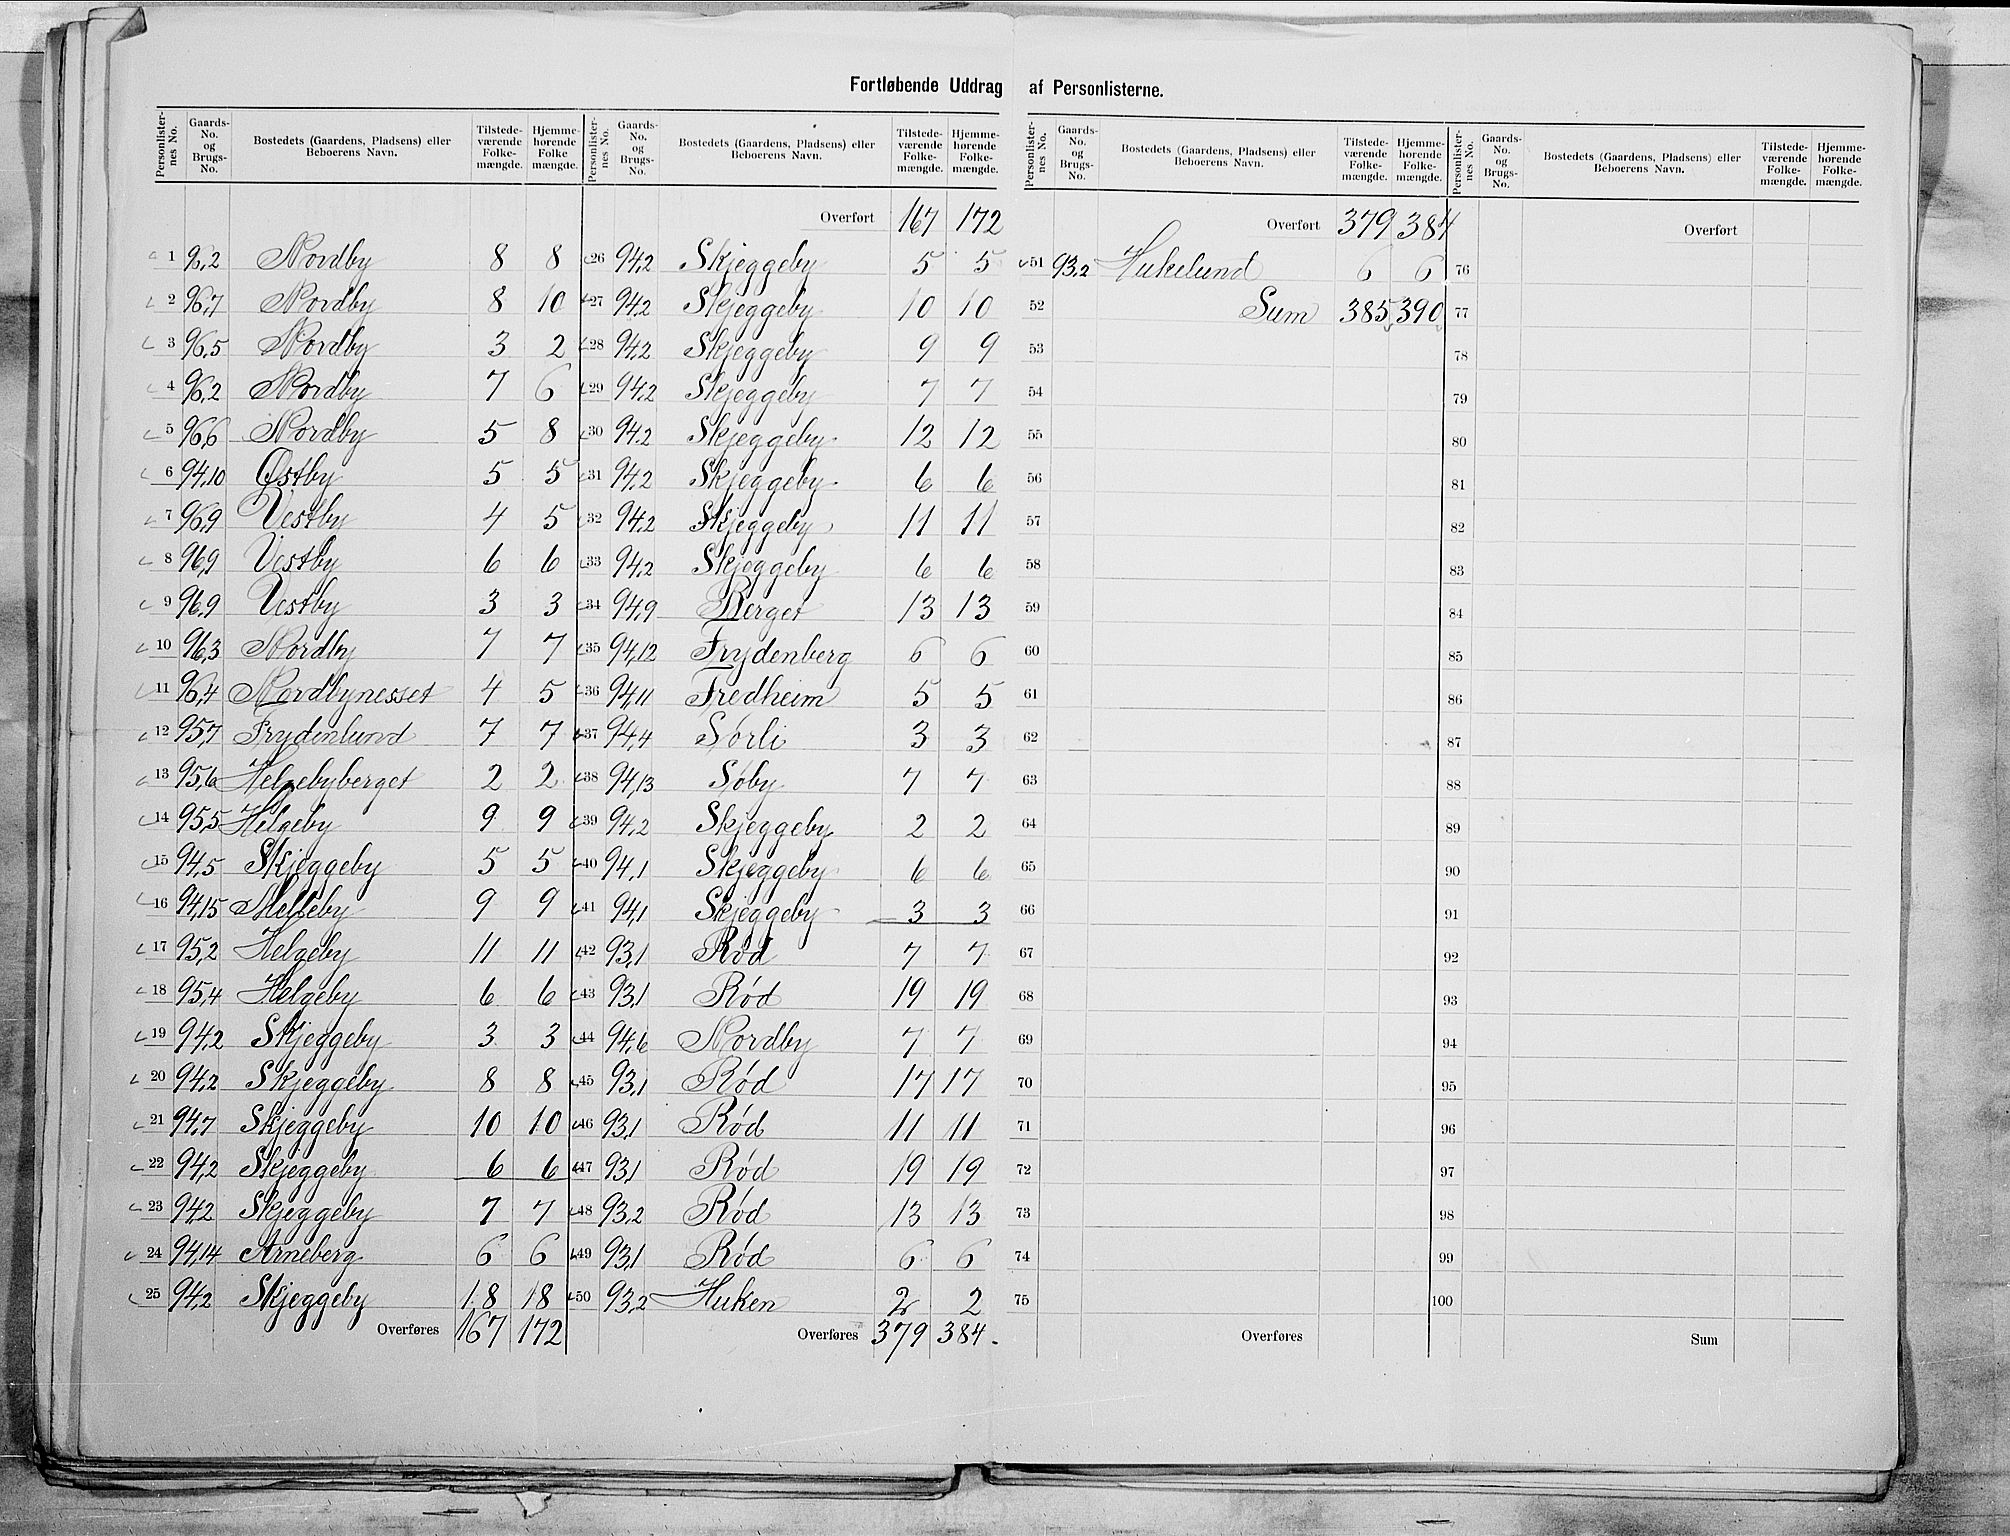 Fortløbende Uddrag af Personlisterne.
Personlister-nes No. Gaards-No. og Brugs-No. Bostedets (Gaardens, Pladsens) eller Beboerens Navn. Tilstede-værende Folke-mængde. Hjemme-hørende Folke mængde.
1 96,2 Nordby 8 8
2 96,7 Nordby 8 10
3 96,5 Nordby 3 2
4 96,2 Nordby 7 6
5 96,6 Nordby 5 8
6 94,10 Østby 5 5
7 96,9 Vestby 4 5
8 96,9 Vestby 6 6
9 96,9 Vestby 3 3
10 96,3 Nordby 7 7
11 96,4 Nordbynesset 4 5
12 95,7 Frydenlund 7 7
13 95,6 Helgebyberget 2 2
14 95,5 Helgeby 9 9
15 94,5 Skjeggeby 5 5
16 94,15 Melleby 9 9
17 95,2 Helgeby 11 11
18 95,4 Helgeby 6 6
19 94,2 Skjeggeby 3 3
20 94,2 Skjeggeby 8 8
21 94,7 Skjeggeby 10 10
22 94,2 Skjeggeby 6 6
23 94,2 Skjeggeby 7 7
24 94,14 Arneberg 6 6
25 94,2 Skjeggeby 18 18
Overføres 167 172
Personlister-nes No. Gaards-No. og Brugs-No. Bostedets (Gaardens, Pladsens) eller Beboerens Navn. Tilstede-værende Folke-mængde. Hjemme-hørende Folke-mængde.
Overført 167 172
26 94,2 Skjeggeby 5 5
27 94,2 Skjeggeby 10 10
28 94,2 Skjeggeby 9 9
29 94,2 Skjeggeby 7 7
30 94,2 Skjeggeby 12 12
31 94,2 Skjeggeby 6 6
32 94,2 Skjeggeby 11 11
33 94,2 Skjeggeby 6 6
34 94,9 Berget 13 13
35 94,12 Frydenberg 6 6
36 94,11 Fredheim 5 5
37 94,4 Sørli 3 3
38 94,13 Søby 7 7
39 94,2 Skjeggeby 2 2
40 94,1 Skjeggeby 6 6
41 94,1 Skjeggeby 3 3
42 93,1 Rød 7 7
43 93,1 Rød 19 19
44 94,6 Nordby 7 7
45 93,1 Rød 17 17
46 93,1 Rød 11 11
47 93,1 Rød 19 19
48 93,2 Rød 13 13
49 93,1 Rød 6 6
50 93,2 Huken 2 2
Overføres 379 384
Personlister-nes No. Gaards-No. og Brugs-No. Bostedets (Gaardens, Pladsens) eller Beboerens Navn. Tilstede-værende Folke-mængde. Hjemme-hørende Folke-mængde.
Overført 379 384
51 93,2 Hukelund 6 6
52 Sum 385 390
53
54
55
56
57
58
59
60
61
62
63
64
65
66
67
68
69
70
71
72
73
74
75
Overføres
Personlister-nes No. Gaards-No. og Brugs-No. Bostedets (Gaardens, Pladsens) eller Beboerens Navn. Tilstede-værende Folke-mængde. Hjemme-hørende Folke-mængde.
Overført
76
77
78
79
80
81
82
83
84
85
86
87
88
89
90
91
92
93
94
95
96
97
98
99
100
Sum